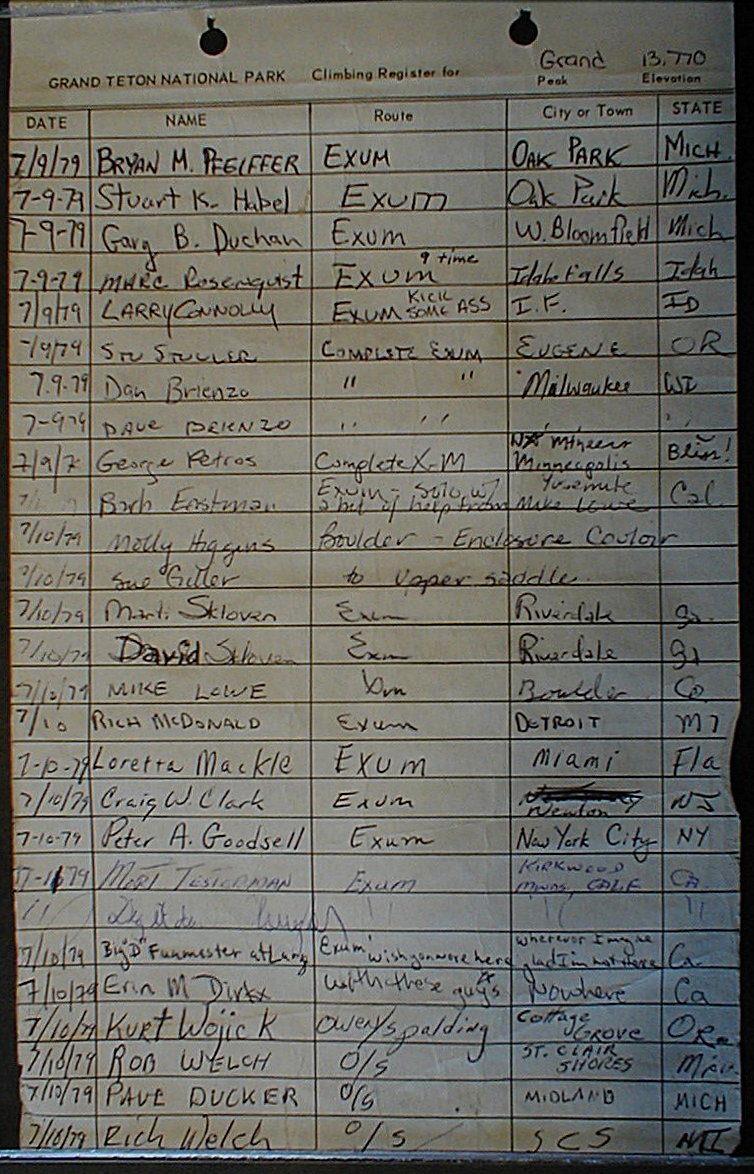 Grand 13,770
GRAND TETON NATIONAL PARK Climbing Register for Peak Elevation
DATE NAME Route City or Town STATE
7/9/79 BRYAN M. PFEIFFER EXUM OAK PARK MICH.
7-9-79 Stuart K. Habel EXUM Oak Park Mich.
7-9-79 Gary B. Duchan Exum W. Bloomfield Mich
7-9-79 MARC Rosenquist EXUM 9 time Idaho Falls Idah
7/9/79 LARRY CONNOLLY EXUM KICK SOME ASS I.F. ID
7/9/79 STU STULLER COMPLETE EXUM EUGENE OR
7.9.79 Dan Brienzo " " Milwaukee WI
7-9-79 DAVE BRIENZO " " " "
7/9/7 George Petros Complete X-M Minneapolis
Barb Eastman Exum - Solo w/ a bit of help from Mike Lowe Yosemite Cal
7/10/79 Molly Higgins Boulder - Enclosure Couloir
7/10/79 Sue Giller to upper saddle.
7/10/79 Marti Skloven Exum Riverdale Ga.
7/10/79 David Skloven Exum Riverdale Ga
7/10/79 MIKE LOWE Boulder Co
7/10 RICH MCDONALD Exum DETROIT MI
7-10-79 Loretta Mackle EXUM Miami Fla
7/10/79 Craig W. Clark Exum Newton NJ
7-10-79 Peter A. Goodsell Exum New York City NY
79 MORT TESTERMAN Exum KIRKWOOD CALIF CA
" " " "
7/10/79 Big "D" Funmester at Large Exum wish you were here wherever I maybe glad I'm not there Ca.
7/10/79 Erin M Dirkx with these guys Nowhere Ca
7/10/79 Kurt Wojick Owen/spalding Cottage GROVE OR
7/10/79 ROB WELCH O/S ST. CLAIR SHORES
7/10/79 PAUL DUCKER O/S MIDLAND MICH
7/10/79 Rich Welch O/S SCS MI